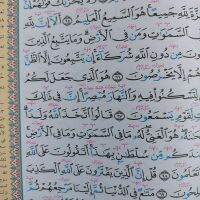 يَحْزُنكَ قَوْلُهُمْ
لِلَّهِ جَمِيعًا هُوَ السَّمِيعُ الْعَلِيمُ ٦٥ أَلَا إِنَّ لِلَّهِ
السَّمَٰوَٰتِ وَمَن فِي الْأَرْضِ وَمَا يَتَّبِعُ الَّذِينَ
مِن دُونِ اللَّهِ شُرَكَاءَ إِن يَتَّبِعُونَ إِلَّا
إِلَّا يَخْرُصُونَ ٦٦ هُوَ الَّذِي جَعَلَ لَكُمُ
لِتَسْكُنُوا فِيهِ وَالنَّهَارَ مُبْصِرًا إِنَّ فِي ذَٰلِكَ
لِّقَوْمٍ يَسْمَعُونَ ٦٧ قَالُوا اتَّخَذَ اللَّهُ وَلَدًا
هُوَ الْغَنِيُّ لَهُ مَا فِي السَّمَٰوَٰتِ وَمَا فِي الْأَرْضِ
عِندَكُم مِّن سُلْطَٰنٍ بِهَٰذَا أَتَقُولُونَ عَلَى اللَّهِ
تَعْلَمُونَ ٦٨ قُلْ إِنَّ الَّذِينَ يَفْتَرُونَ عَلَى اللَّهِ
مَتَٰعٌ فِي الدُّنْيَا ثُمَّ إِلَيْنَا مَرْجِعُهُمْ ثُمَّ